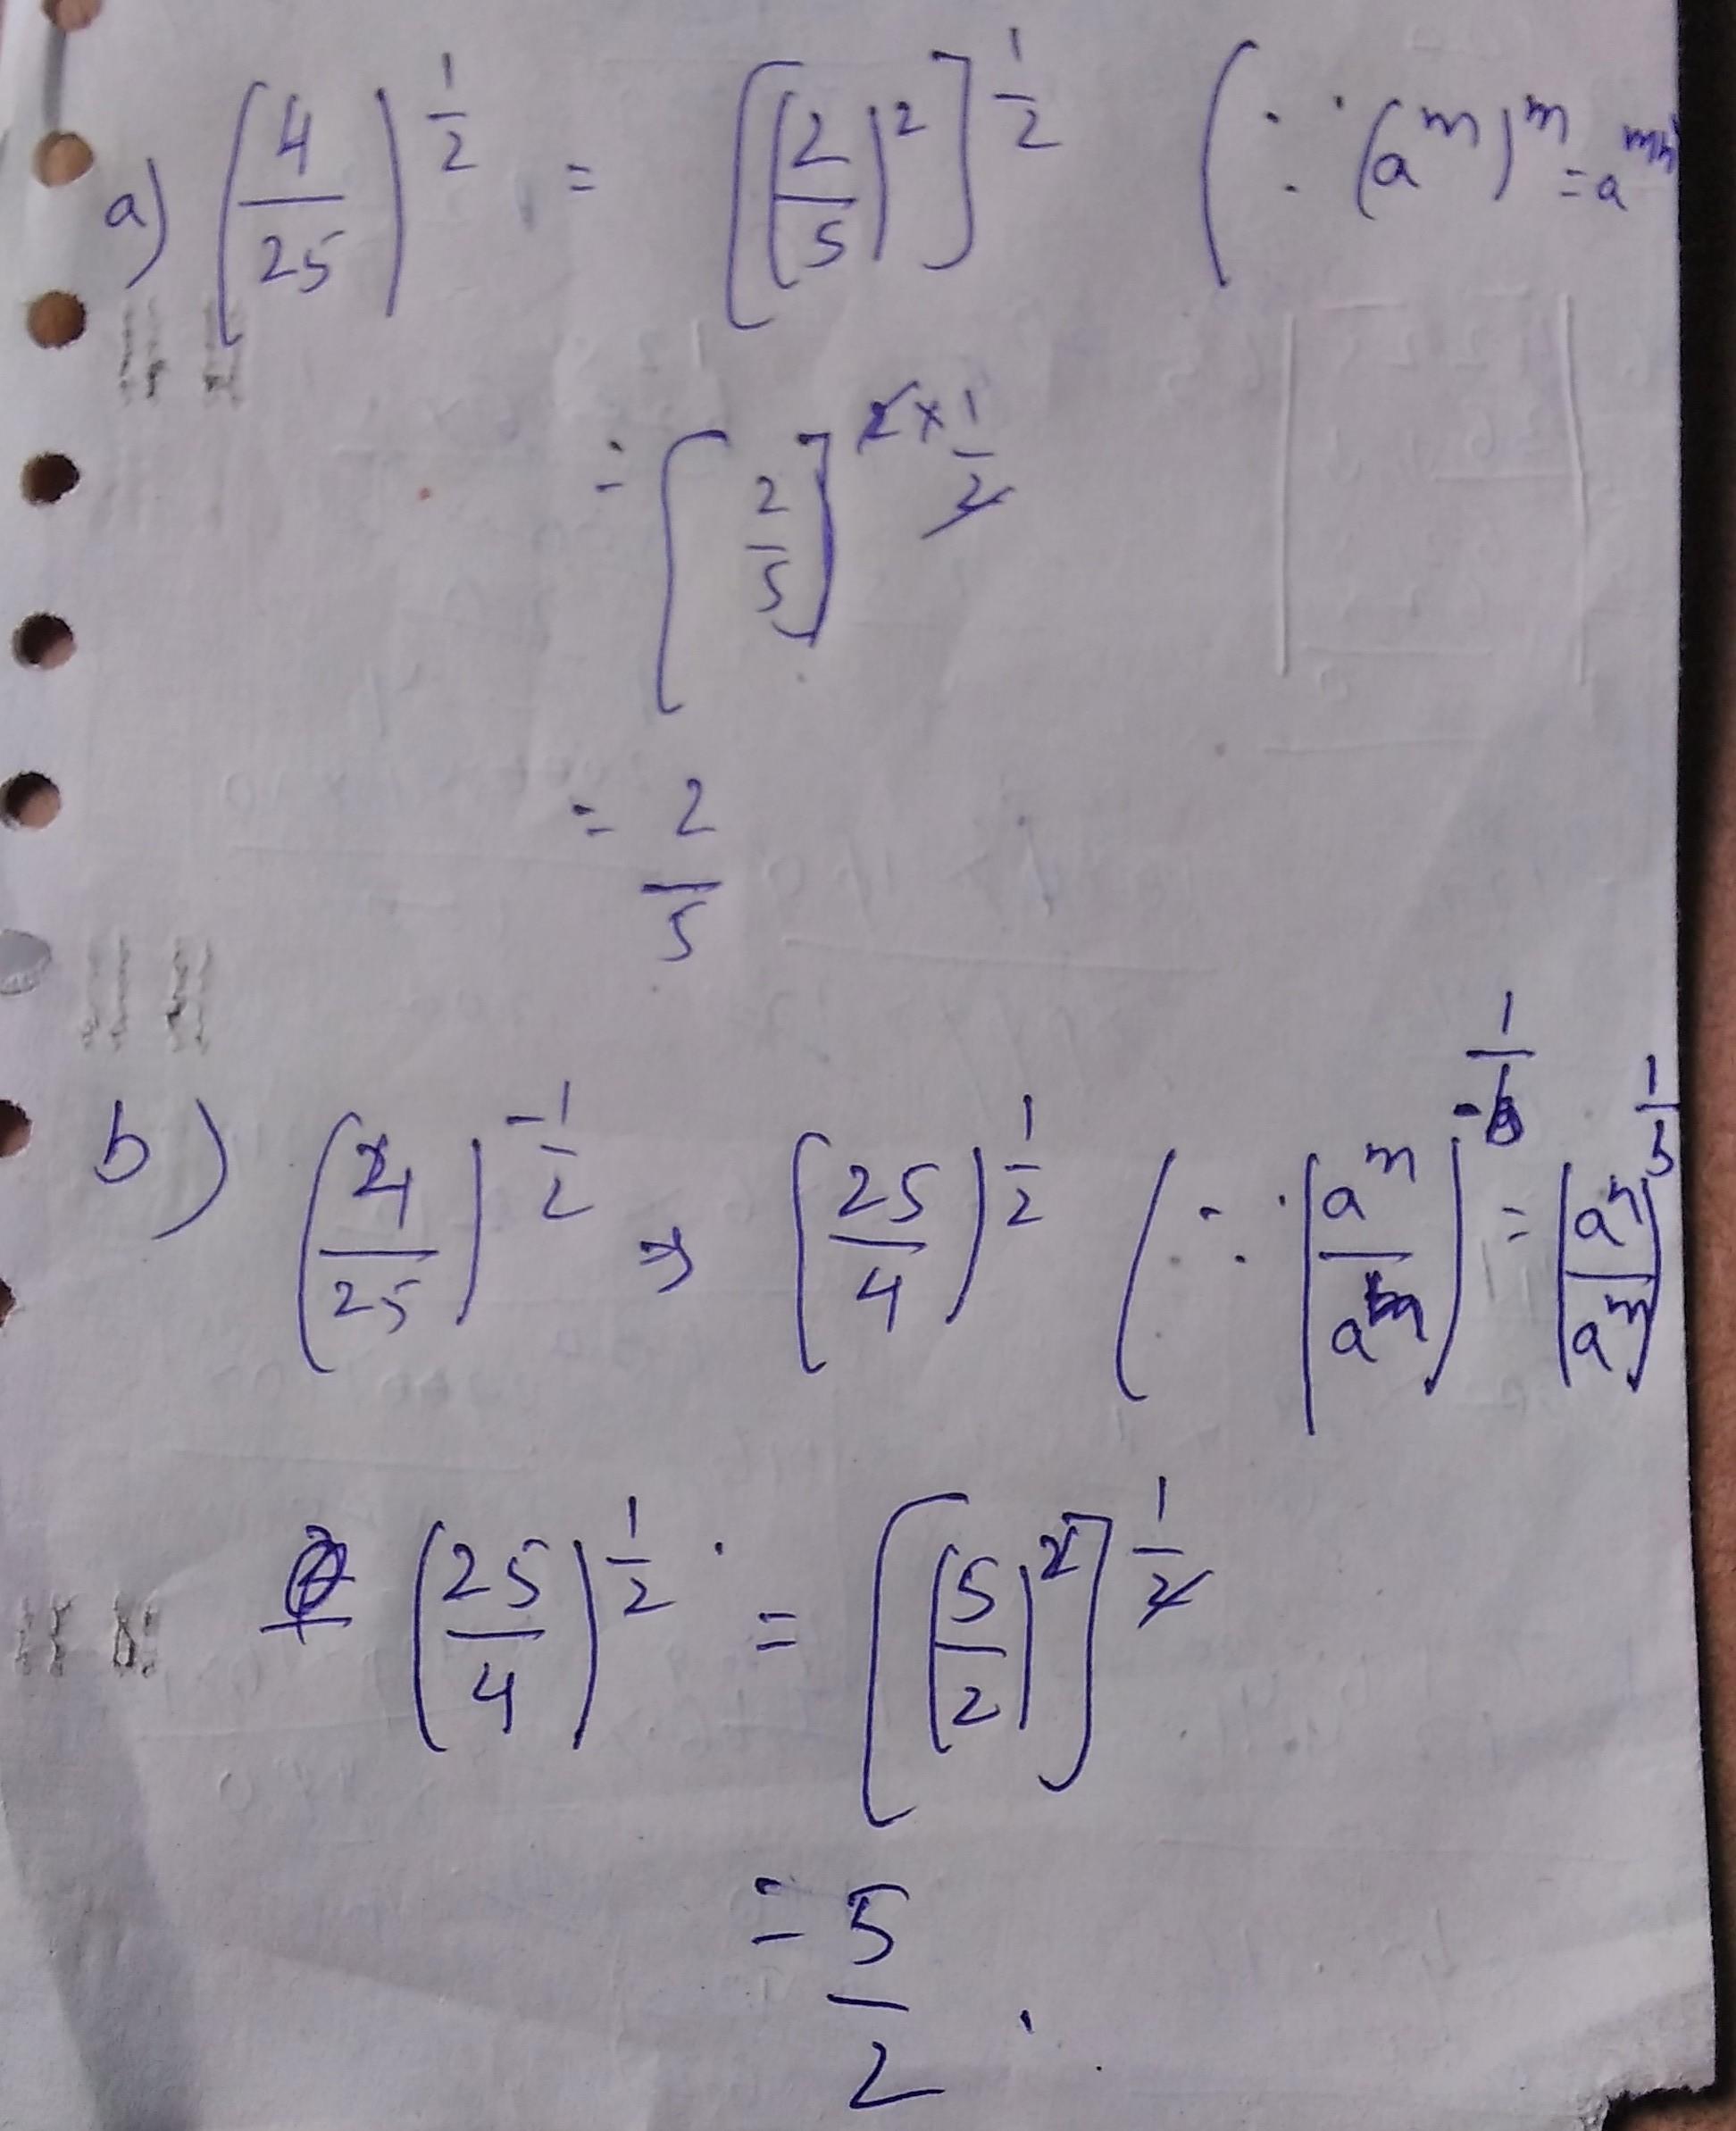 a) (4/25)^(1/2) = [(2/5)^2]^(1/2) (∵ (a^m)^m = a^mn
= [2/5]^(2×1/2)
= 2/5
b) (4/25)^(-1/2) ⇒ (25/4)^(1/2) (∵ (a^m/a^n)^(-1/b) = (a^n/a^m)^(1/b)
(25/4)^(1/2) = [(5/2)^2]^(1/2)
= 5/2.